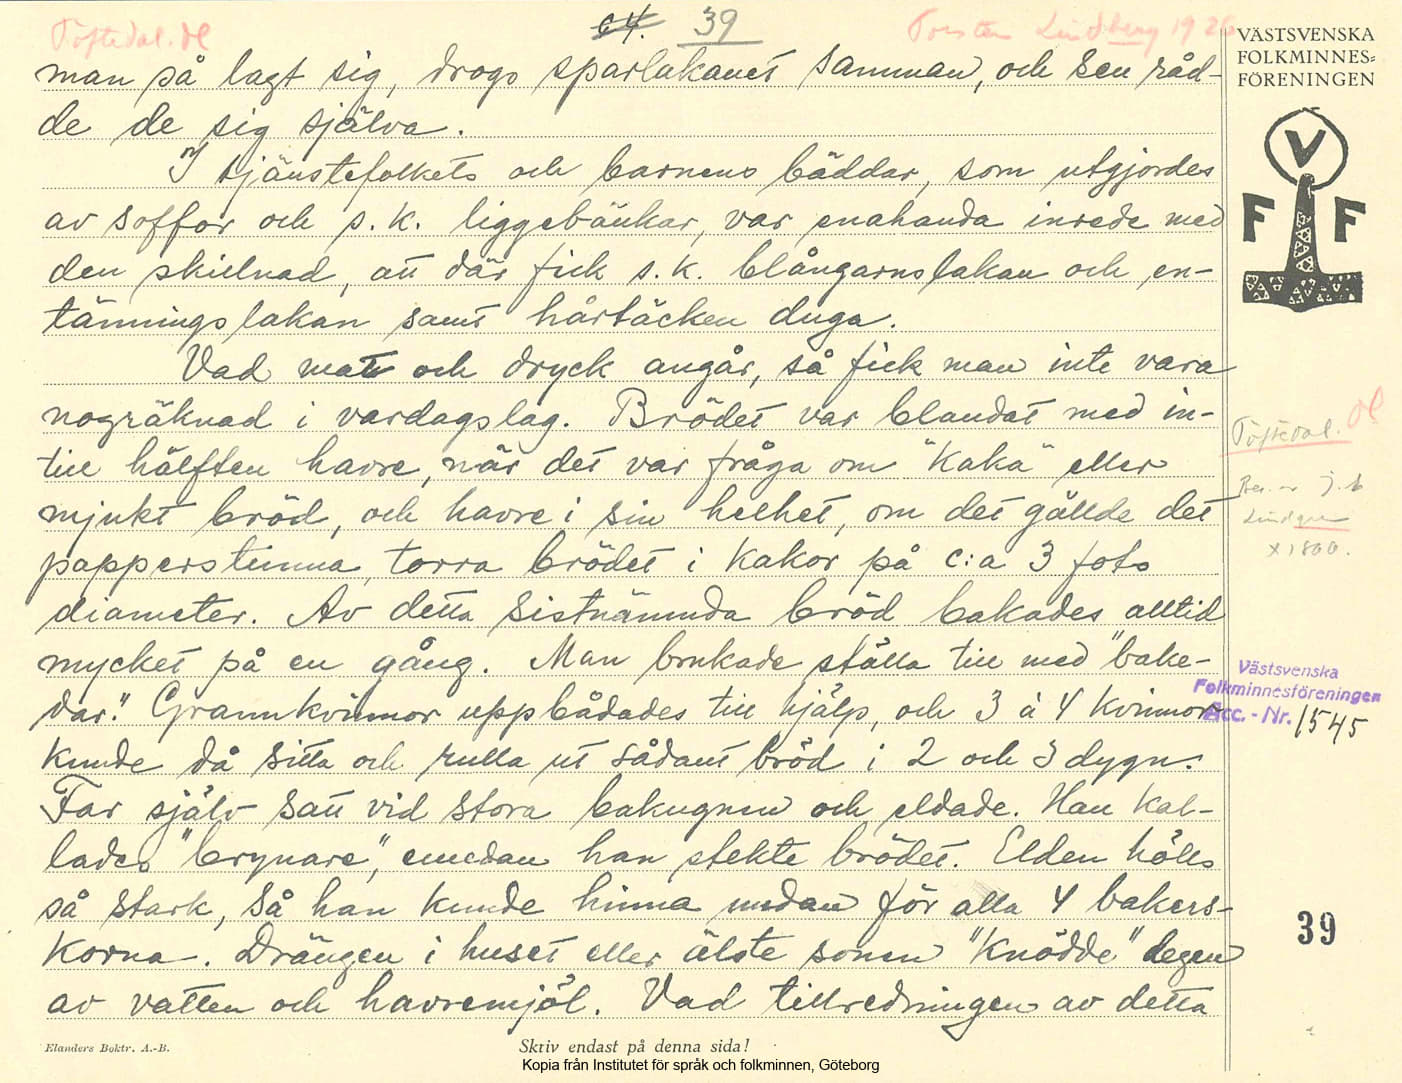 Töftedal. Dl
64. 39
Torsten Lindberg 1926
VÄSTSVENSKA
FOLKMINNES=
FÖRENINGEN
V
F F
man så lagt sig, drogs sparlakanet samman, och sen råd-
de de sig själva.
I tjänstefolkets och barnens bäddar, som utgjordes
av soffor och s.k. liggebänkar, var enahanda inrede med
den skillnad, att där fick s.k. blångarnslakan och en-
tänningslakan samt hårtäcken duga.
Vad mat och dryck angår, så fick man inte vara
nogräknad i vardagslag. Brödet var blandat med in-
till hälften havre, när det var fråga om "Kaka" eller
mjukt bröd, och havre i sin helhet, om det gällde det
papperstunna, torra brödet i kakor på c:a 3 fots
diameter. Av detta sistnämnda bröd bakades alltid
mycket på en gång. Man brukade ställa till med "bake-
dar". Grannkvinnor uppbådades till hjälp, och 3 à 4 kvinnor
kunde då sitta och rulla ut sådant bröd i 2 och 3 dygn.
Far själv satt vid stora bakugnen och eldade. Han kal-
lades "brynare", emedan han stekte brödet. Elden hölls
så stark, så han kunde hinna undan för alla 4 bakers-
korna. Drängen i huset eller älste sonen "knödde" degen
av vatten och havremjöl. Vad tillredningen av detta
Töftedal. Dl
Ber. av J. A.
Lindgren
x 1860.
Västsvenska
Folkminnesföreningen
Acc. - Nr. 1545
39
Elanders Boktr. A.-B.
Skriv endast på denna sida!
Kopia från Institutet för språk och folkminnen, Göteborg